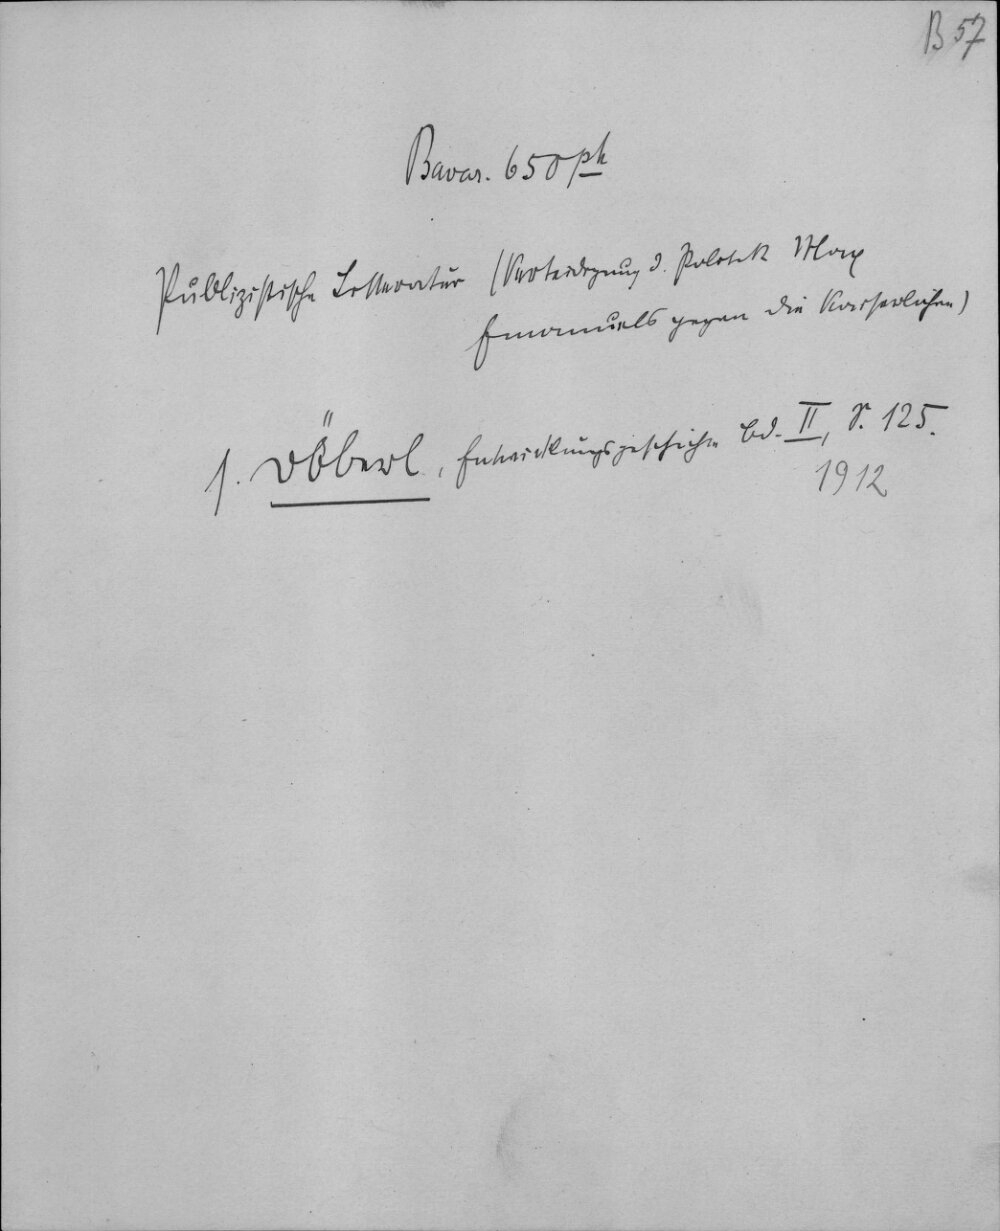 B 57
Bavar. 650 ph
Publizistische Litteratur (Verteidigung d. Politik Max
Emanuels gegen die Kaiserlichen)
s. Döberl, Entwicklungsgeschichte Bd. II, S. 125.
1912